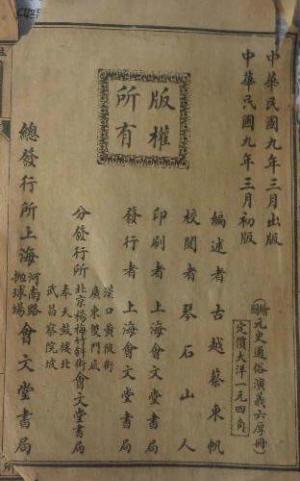 中華民國九年三月出版
中華民國九年三月初版
繪圖元史通俗演義六厚冊
定價大洋一元四角
編述者古越蔡東帆
校閱者琴石山人
印刷者上海會文堂書局
發行者上海會文堂書局
版權所有
分發行所
漢口黃陂街
廣東雙門底
北京楊梅竹斜街
奉天鼓樓北
武昌察院坡
會文堂書局
總發行所上海河南路拋球場會文堂書局